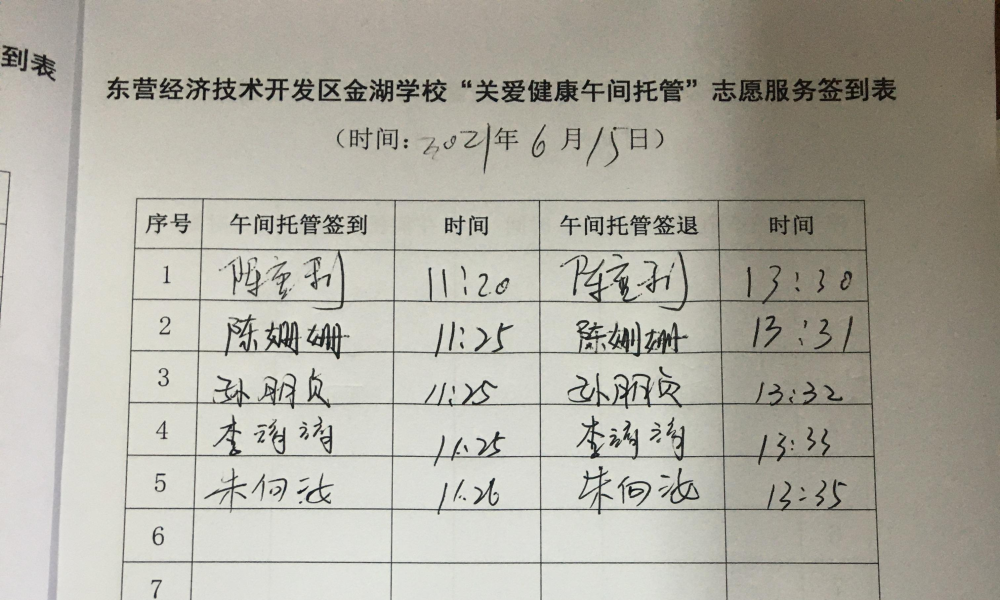 到表
东营经济技术开发区金湖学校“关爱健康午间托管”志愿服务签到表
（时间：2021年6月15日）
序号 午间托管签到 时间 午间托管签退 时间
1 陈 11:20 陈 13:30
2 陈姗姗 11:25 陈姗姗 13:31
3 孙明贞 11:25 孙明贞 13:32
4 李 11:25 李 13:33
5 朱向 11:26 朱向 13:35
6
7